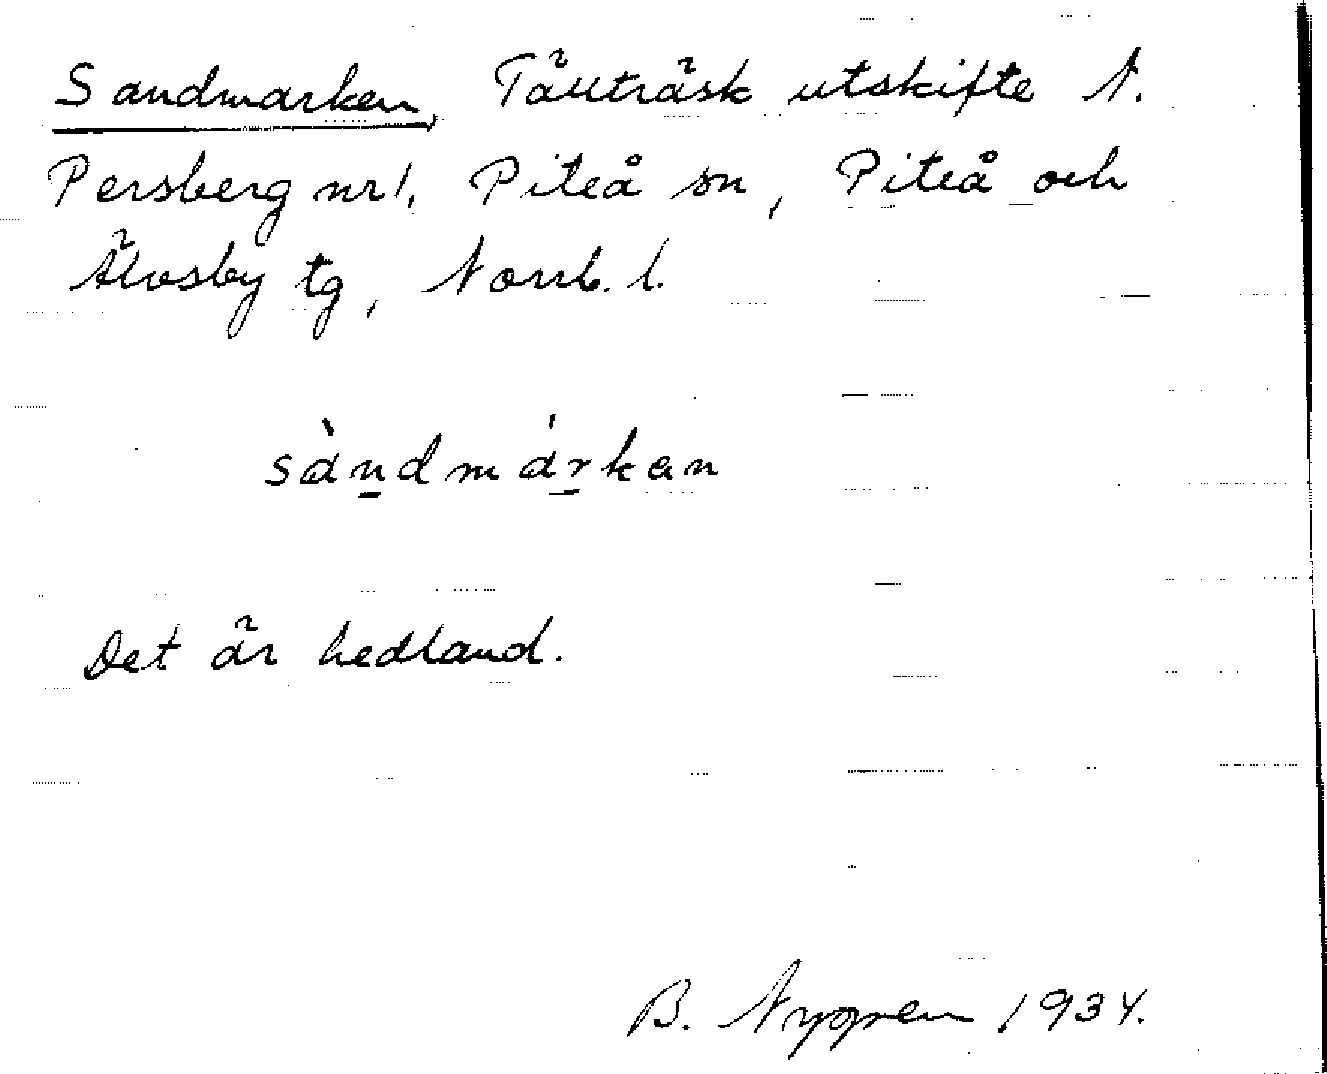 Sandmarken, Tåuträsk utskifte N.
Persberg nr 1. Piteå sn, Piteå och
Älvsby tg, Norrb. l.
sàndmárkan
Det är hedland.
B. Nygren 1934.